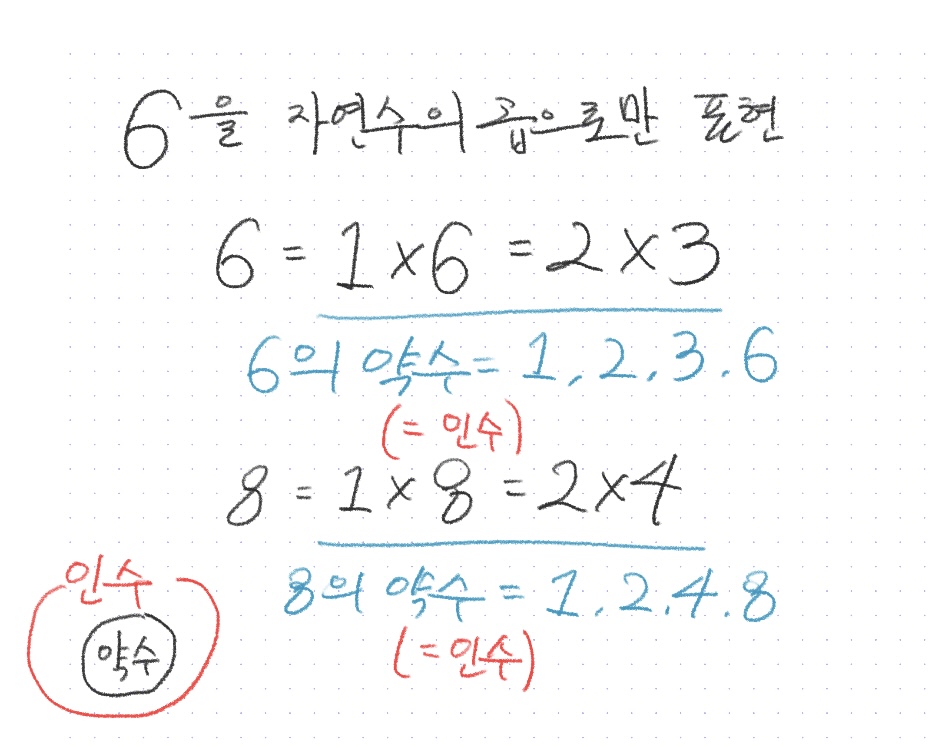 6을 자연수의 곱으로만 표현
6 = 1×6 = 2×3
6의 약수 = 1, 2, 3, 6
(= 인수)
8 = 1×8 = 2×4
8의 약수 = 1, 2, 4, 8
(= 인수)
인수
약수